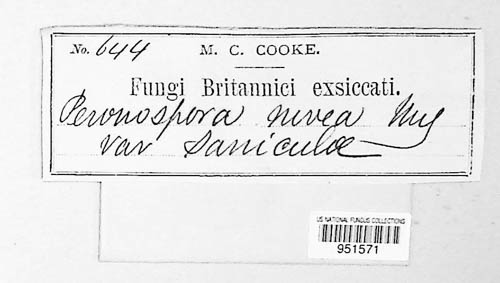 No. 644 M. C. COOKE.
Fungi Britannici exsiccati.
Peronospora nivea Ung
var Saniculae
US NATIONAL FUNGUS COLLECTIONS
951571